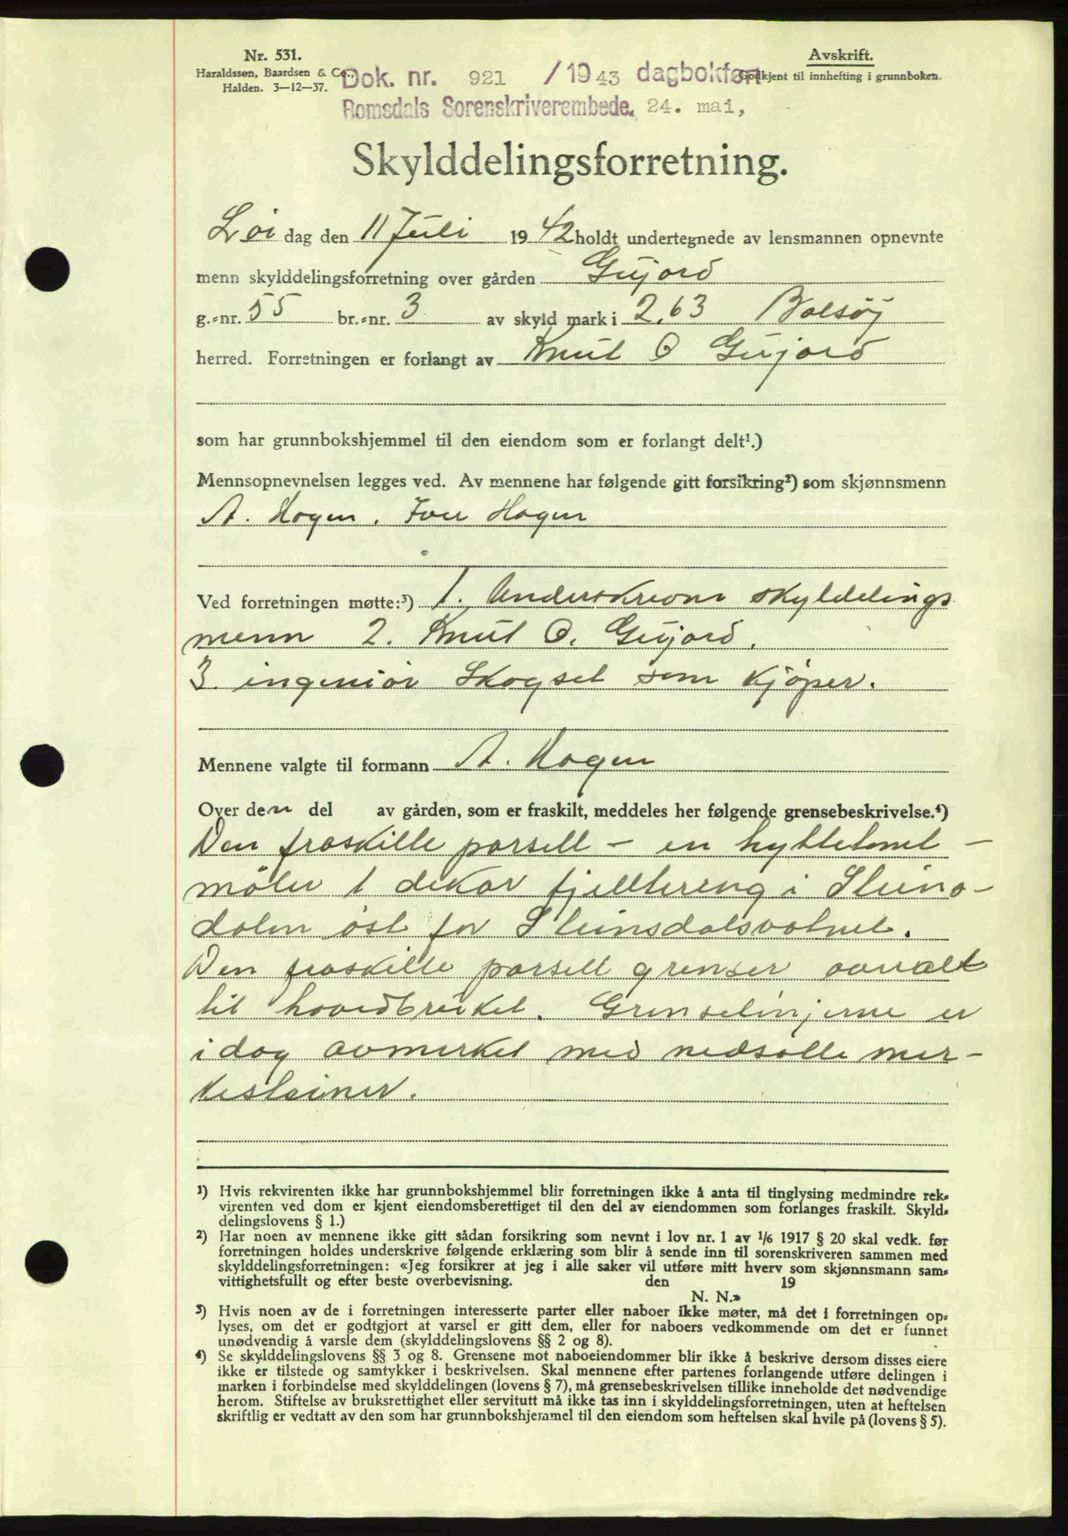 Nr. 531.
Haraldssen, Baardsen & Co.,
Halden. 3—12—37.
Avskrift.
Godkjent til innhefting i grunnboken.
Dok. nr. 921 /1943 dagbokført
Romsdals Sorenskriverembede. 24. mai,
Skylddelingsforretning.
Lör dag den 11 Juli 1942 holdt undertegnede av lensmannen opnevnte
menn skylddelingsforretning over gården Gujord
g.-nr. 55 br.-nr. 3 av skyld mark i 2,63 Bolsöy
herred. Forretningen er forlangt av Knut O Gujord
som har grunnbokshjemmel til den eiendom som er forlangt delt¹.)
Mennsopnevnelsen legges ved. Av mennene har følgende gitt forsikring²) som skjønnsmenn
A. Hagen, Iver Hagen
Ved forretningen møtte:³) 1. Underskrevne skylddelings
menn 2. Knut O. Gujord.
3 ingeniör Skogset som kjöper.
Mennene valgte til formann A. Hagen
Over den del av gården, som er fraskilt, meddeles her følgende grensebeskrivelse.⁴)
Den fraskilte parsell – en hyttetomt –
måler 1 dekar fjellterreng i Steins-
dalen öst for Steinsdalsvatnet.
Den fraskilte parsell grenser overalt
til hovedbruket. Grenselinjerne er
idag avmerket med nedsatte mer-
kesteiner.
¹) Hvis rekvirenten ikke har grunnbokshjemmel blir forretningen ikke å anta til tinglysing medmindre rek-
virenten ved dom er kjent eiendomsberettiget til den del av eiendommen som forlanges fraskilt. Skyld-
delingslovens § 1.)
²) Har noen av mennene ikke gitt sådan forsikring som nevnt i lov nr. 1 av 1/6 1917 § 20 skal vedk. før
forretningen holdes underskrive følgende erklæring som blir å sende inn til sorenskriveren sammen med
skylddelingsforretningen: «Jeg forsikrer at jeg i alle saker vil utføre mitt hverv som skjønnsmann sam-
vittighetsfullt og efter beste overbevisning. den 19
N. N.»
³) Hvis noen av de i forretningen interesserte parter eller naboer ikke møter, må det i forretningen op-
lyses, om det er godtgjort at varsel er gitt dem, eller for naboers vedkommende om det er funnet
unødvendig å varsle dem (skylddelingslovens §§ 2 og 8).
⁴) Se skylddelingslovens §§ 3 og 8. Grensene mot naboeiendommer blir ikke å beskrive dersom disses eiere
ikke er tilstede og samtykker i beskrivelsen. Skal mennene efter partenes forlangende utføre delingen i
marken i forbindelse med skylddelingen (lovens § 7), må grensebeskrivelsen tillike inneholde det nødvendige
herom. Stiftelse av bruksrettighet eller servitutt må ikke tas inn i skylddelingsforretningen, uten at heftelsen
skriftlig er vedtatt av den som har grunnbokshjemmel til den eiendom som heftelsen skal hvile på (lovens § 5).